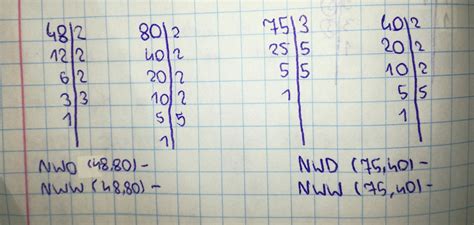 48|2 80|2 75|3 40|2
12|2 40|2 25|5 20|2
6|2 20|2 5|5 10|2
3|3 10|2 1 5|5
1 5|5 1
1
NWD (48,80) – NWD (75,40) –
NWW (48,80) – NWW (75,40) –